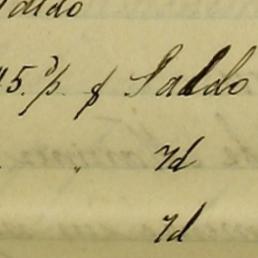 Saldo
" 5. d/p. $ Saldo
" " Id
Id